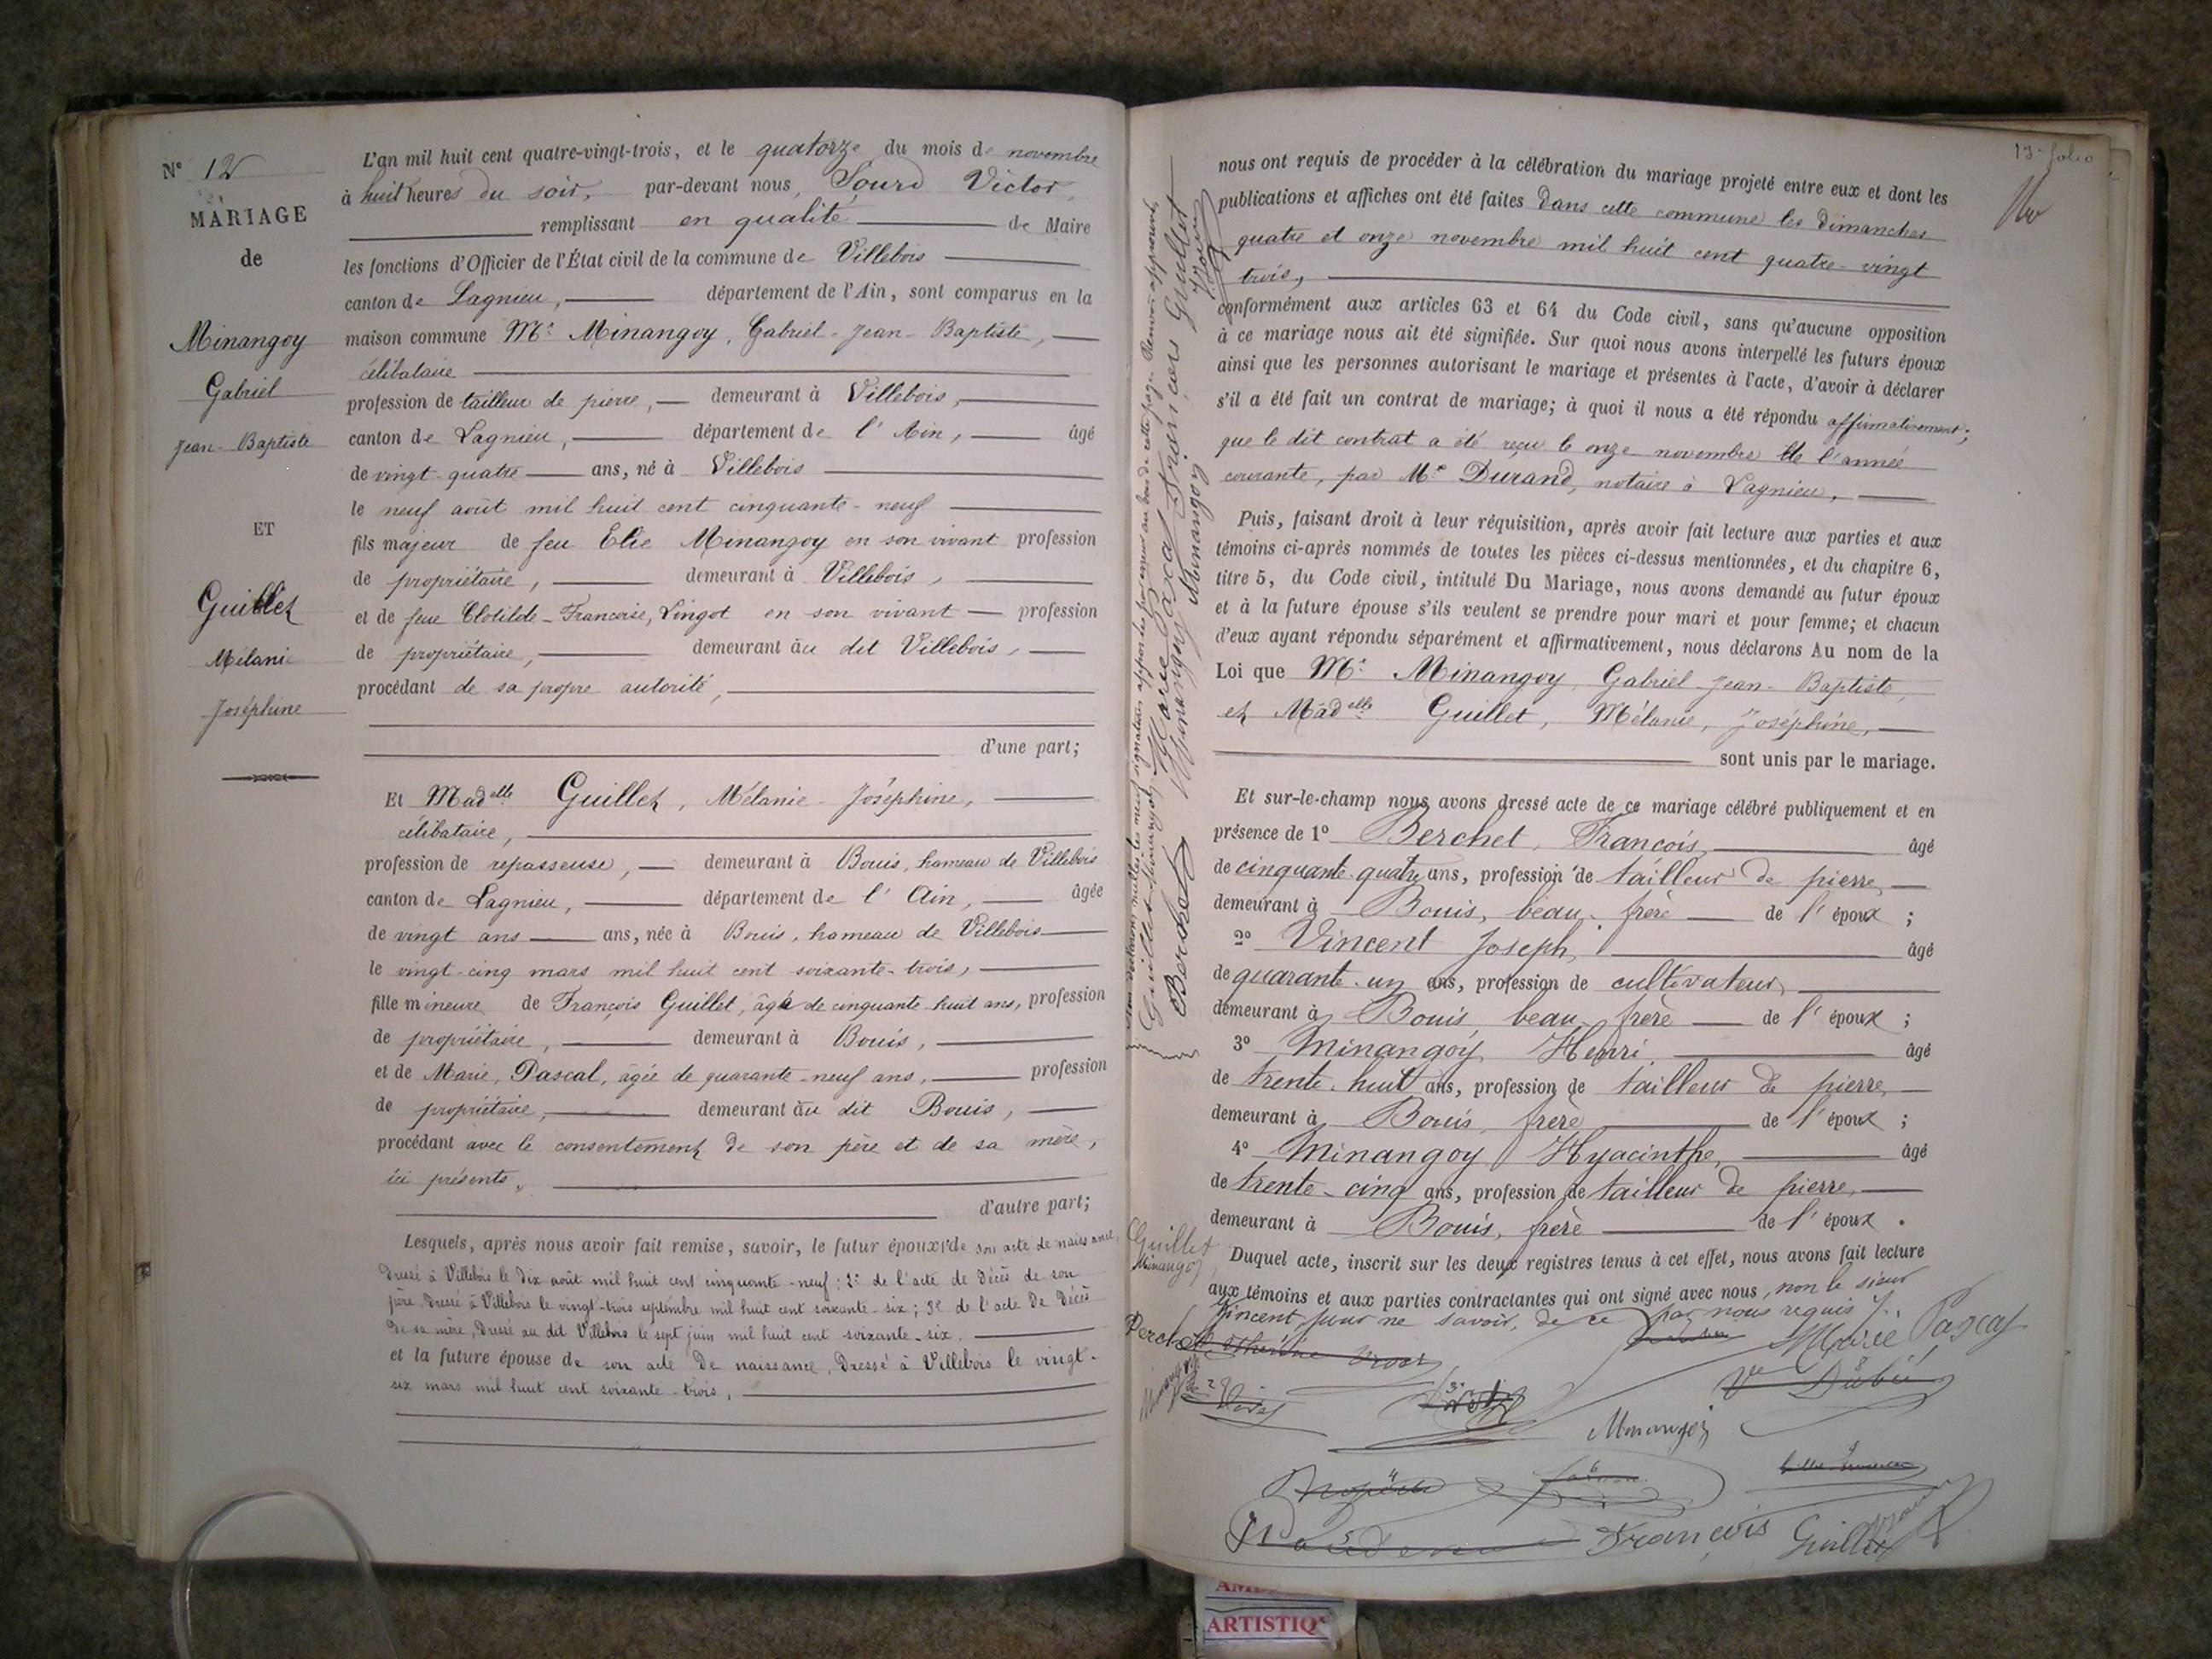 N° 12
MARIAGE
de
Minangoy
Gabriel
Jean-Baptiste
ET
Guillet
Mélanie
Joséphine
L'an mil huit cent quatre-vingt-trois, et le quatorze du mois de novembre
à huit heures du soir, par-devant nous, Sourd Victor,
remplissant en qualité de Maire
les fonctions d'Officier de l'État civil de la commune de Villebois
canton de Lagnieu, département de l'Ain, sont comparus en la
maison commune Mr. Minangoy, Gabriel-Jean-Baptiste,
célibataire
profession de tailleur de pierre, demeurant à Villebois,
canton de Lagnieu, département de l'Ain, âgé
de vingt-quatre ans, né à Villebois
le neuf août mil huit cent cinquante-neuf
fils majeur de feu Elie Minangoy en son vivant profession
de propriétaire, demeurant à Villebois,
et de feue Clotilde-Francoise, Lingot en son vivant profession
de propriétaire, demeurant au dit Villebois,
procédant de sa propre autorité,
d'une part;
Et Madelle Guillet, Mélanie-Joséphine,
célibataire,
profession de repasseuse, demeurant à Bouis, hameau de Villebois
canton de Lagnieu, département de l'Ain, âgée
de vingt ans ans, née à Bouis, hameau de Villebois
le vingt-cinq mars mil huit cent soixante-trois,
fille mineure de François Guillet, âgé de cinquante-huit ans, profession
de propriétaire, demeurant à Bouis,
et de Marie, Pascal, âgée de quarante-neuf ans, profession
de propriétaire, demeurant au dit Bouis,
procédant avec le consentement de son père et de sa mère,
ici présents,
d'autre part;
Lesquels, après nous avoir fait remise, savoir, le futur époux 1° de son acte de naissance,
dressé à Villebois le dix août mil huit cent cinquante-neuf; 2° de l'acte de décès de son
père, dressé à Villebois le vingt-trois septembre mil huit cent soixante-six; 3° de l'acte de décès
de sa mère, dressé au dit Villebois le sept juin mil huit cent soixante-six.
et la future épouse de son acte de naissance, dressé à Villebois le vingt-
six mars mil huit cent soixante-trois,
13e folio
nous ont requis de procéder à la célébration du mariage projeté entre eux et dont les
publications et affiches ont été faites dans cette commune les dimanches
quatre et onze novembre mil huit cent quatre-vingt
trois,
conformément aux articles 63 et 64 du Code civil, sans qu'aucune opposition
à ce mariage nous ait été signifiée. Sur quoi nous avons interpellé les futurs époux
ainsi que les personnes autorisant le mariage et présentes à l'acte, d'avoir à déclarer
s'il a été fait un contrat de mariage; à quoi il nous a été répondu affirmativement;
que le dit contrat a été reçu le onze novembre de l'année
courante, par Me. Durand, notaire à Lagnieu,
Puis, faisant droit à leur réquisition, après avoir fait lecture aux parties et aux
témoins ci-après nommés de toutes les pièces ci-dessus mentionnées, et du chapitre 6,
titre 5, du Code civil, intitulé Du Mariage, nous avons demandé au futur époux
et à la future épouse s'ils veulent se prendre pour mari et pour femme; et chacun
d'eux ayant répondu séparément et affirmativement, nous déclarons Au nom de la
Loi que Mr. Minangoy, Gabriel-Jean-Baptiste,
et Madelle Guillet, Mélanie, Joséphine,
sont unis par le mariage.
Et sur-le-champ nous avons dressé acte de ce mariage célébré publiquement et en
présence de 1° Berchet, François, âgé
de cinquante-quatre ans, profession de tailleur de pierre
demeurant à Bouis, beau-frère de l'époux;
2° Vincent Joseph, âgé
de quarante-un ans, profession de cultivateur,
demeurant à Bouis, beau-frère de l'époux;
3° Minangoy Henri, âgé
de trente-huit ans, profession de tailleur de pierre,
demeurant à Bouis, frère de l'époux;
4° Minangoy Hyacinthe, âgé
de trente-cinq ans, profession de tailleur de pierre,
demeurant à Bouis, frère de l'époux.
Duquel acte, inscrit sur les deux registres tenus à cet effet, nous avons fait lecture
aux témoins et aux parties contractantes qui ont signé avec nous, non le sieur
Vincent pour ne savoir, de ce par nous requis
Marie Pascal
Minangoy
François Guillet
Guillet
Minangoy
Berchet
Marie Pascal François Guillet
Minangoy
Minangoy
ARTISTIQ